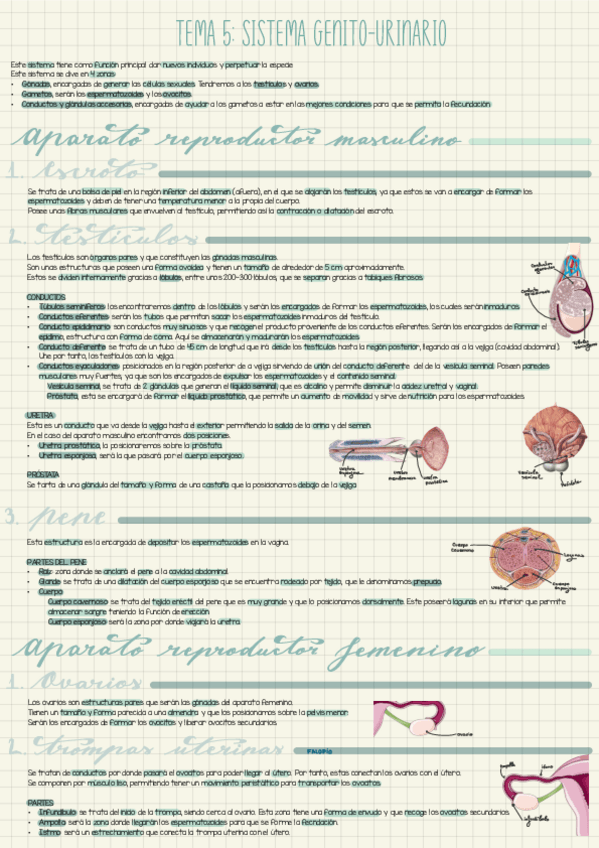 TEMA 5: SISTEMA GENITO-URINARIO
Este sistema tiene como función principal dar nuevos individuos y perpetuar la especie
Este sistema se dive en 4 zonas:
• Gónadas, encargadas de generar las células sexuales. Tendremos a los testículos y ovarios.
• Gametos, serán los espermatozoides y los ovocitos.
• Conductos y glándulas accesorias, encargadas de ayudar a los gametos a estar en las mejores condiciones para que se permita la fecundación.
aparato reproductor masculino
1. Escroto
Se trata de una bolsa de piel en la región inferior del abdomen (afuera), en el que se alojarán los testículos, ya que estos se van a encargar de formar los
espermatozoides y deben de tener una temperatura menor a la propia del cuerpo.
Posee unas fibras musculares que envuelven al testículo, permitiendo así la contracción o dilatación del escroto.
2. testículos
Los testículos son órganos pares y que constituyen las gónadas masculinas.
Son unas estructuras que poseen una forma ovoidea y tienen un tamaño de alrededor de 5 cm aproximadamente.
Estos se dividen internamente gracias a lóbulos, entre unos 200-300 lóbulos, que se separan gracias a tabiques fibrosos.
CONDUCTOS
• Túbulos seminíferos: los encontraremos dentro de los lóbulos y serán los encargados de formar los espermatozoides, los cuales serán inmaduros.
• Conductos eferentes: serán los tubos que permitan sacar los espermatozoides inmaduros del testículo.
• Conducto epididimario: son conductos muy sinuosos y que recogen el producto proveniente de los conductos eferentes. Serán los encargados de formar el
epidimo, estructura con forma de coma. Aquí se almacenarán y madurarán los espermatozoides.
• Conducto deferente: se trata de un tubo de 45 cm de longitud que irá desde los testículos hasta la región posterior, llegando así a la vejiga (cavidad abdominal).
Une por tanto, los testículos con la vejiga.
• Conductos eyaculadores: posicionados en la región posterior de a vejiga sirviendo de unión del conducto deferente del de la vesícula seminal. Poseen paredes
musculares muy fuertes, ya que son los encargados de expulsar los espermatozoides y el contenido seminal.
Vesícula seminal, se trata de 2 glándulas que generan el líquido seminal, que es alcalino y permite disminuir la acidez uretral y vaginal.
Próstata, esta se encargará de formar el líquido prostático, que permite un aumento de movilidad y sirve de nutrición para los espermatozoides.
URETRA:
Esta es un conducto que va desde la vejiga hasta el exterior permitiendo la salida de la orina y del semen.
En el caso del aparato masculino encontramos dos posiciones.
• Uretra prostática, la posicionaremos sobre la próstata.
• Uretra esponjosa, será la que pasará por el cuerpo esponjoso.
PRÓSTATA
Se tarta de una glándula del tamaño y forma de una castaña que la posicionamos debajo de la vejiga
3. pene
Esta estructura es la encargada de depositar los espermatozoides en la vagina.
Cuerpo cavernoso
Uretra
Cuerpo esponjoso
PARTES DEL PENE
• Raíz: zona donde se anclará el pene a la cavidad abdominal.
• Glande: se trata de una dilatación del cuerpo esponjoso que se encuentra rodeado por tejido, que le denominamos prepucio.
• Cuerpo:
Cuerpo cavernoso: se trata del tejido eréctil del pene que es muy grande y que lo posicionamos dorsalmente. Este poseerá lagunas en su inferior que permite
almacenar sangre teniendo la función de erección.
Cuerpo esponjoso: será la zona por donde viajará la uretra.
aparato reproductor femenino
1. Ovarios
Los ovarios son estructuras pares que serán las gónadas del aparato femenino.
Tienen un tamaño y forma parecida a una almendra y que los posicionamos sobre la pelvis menor.
Serán los encargados de formar los ovocitos y liberar ovocitos secundarios.
ovario
2. trompas uterinas
FALOPIO
Se tratan de conductos por donde pasará el ovocito para poder llegar al útero. Por tanto, estas conectan los ovarios con el útero.
Se componen por músculo liso, permitiendo tener un movimiento peristáltico para transportar los ovocitos.
PARTES
• Infundíbulo: se trata del inicio de la trompa, siendo cerca al ovario. Esta zona tiene una forma de envudo y que recoge los ovocitos secundarios
• Ampolla: será la zona donde llegarán los espermatozoides para que se forme la fecndación.
• Istmo: será un estrechamiento que conecta la trompa uterina con el útero.